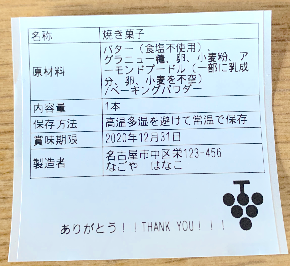 名称 焼き菓子
原材料 バター（食塩不使用）、
グラニュー糖、卵、小麦粉、ア
ーモンドプードル（一部に乳成
分、卵、小麦を含む）
/ベーキングパウダー
内容量 1本
保存方法 高温多湿を避けて常温で保存
賞味期限 2020年12月31日
製造者 名古屋市中区栄123-456
なごや はなこ
ありがとう！！THANK YOU！！！